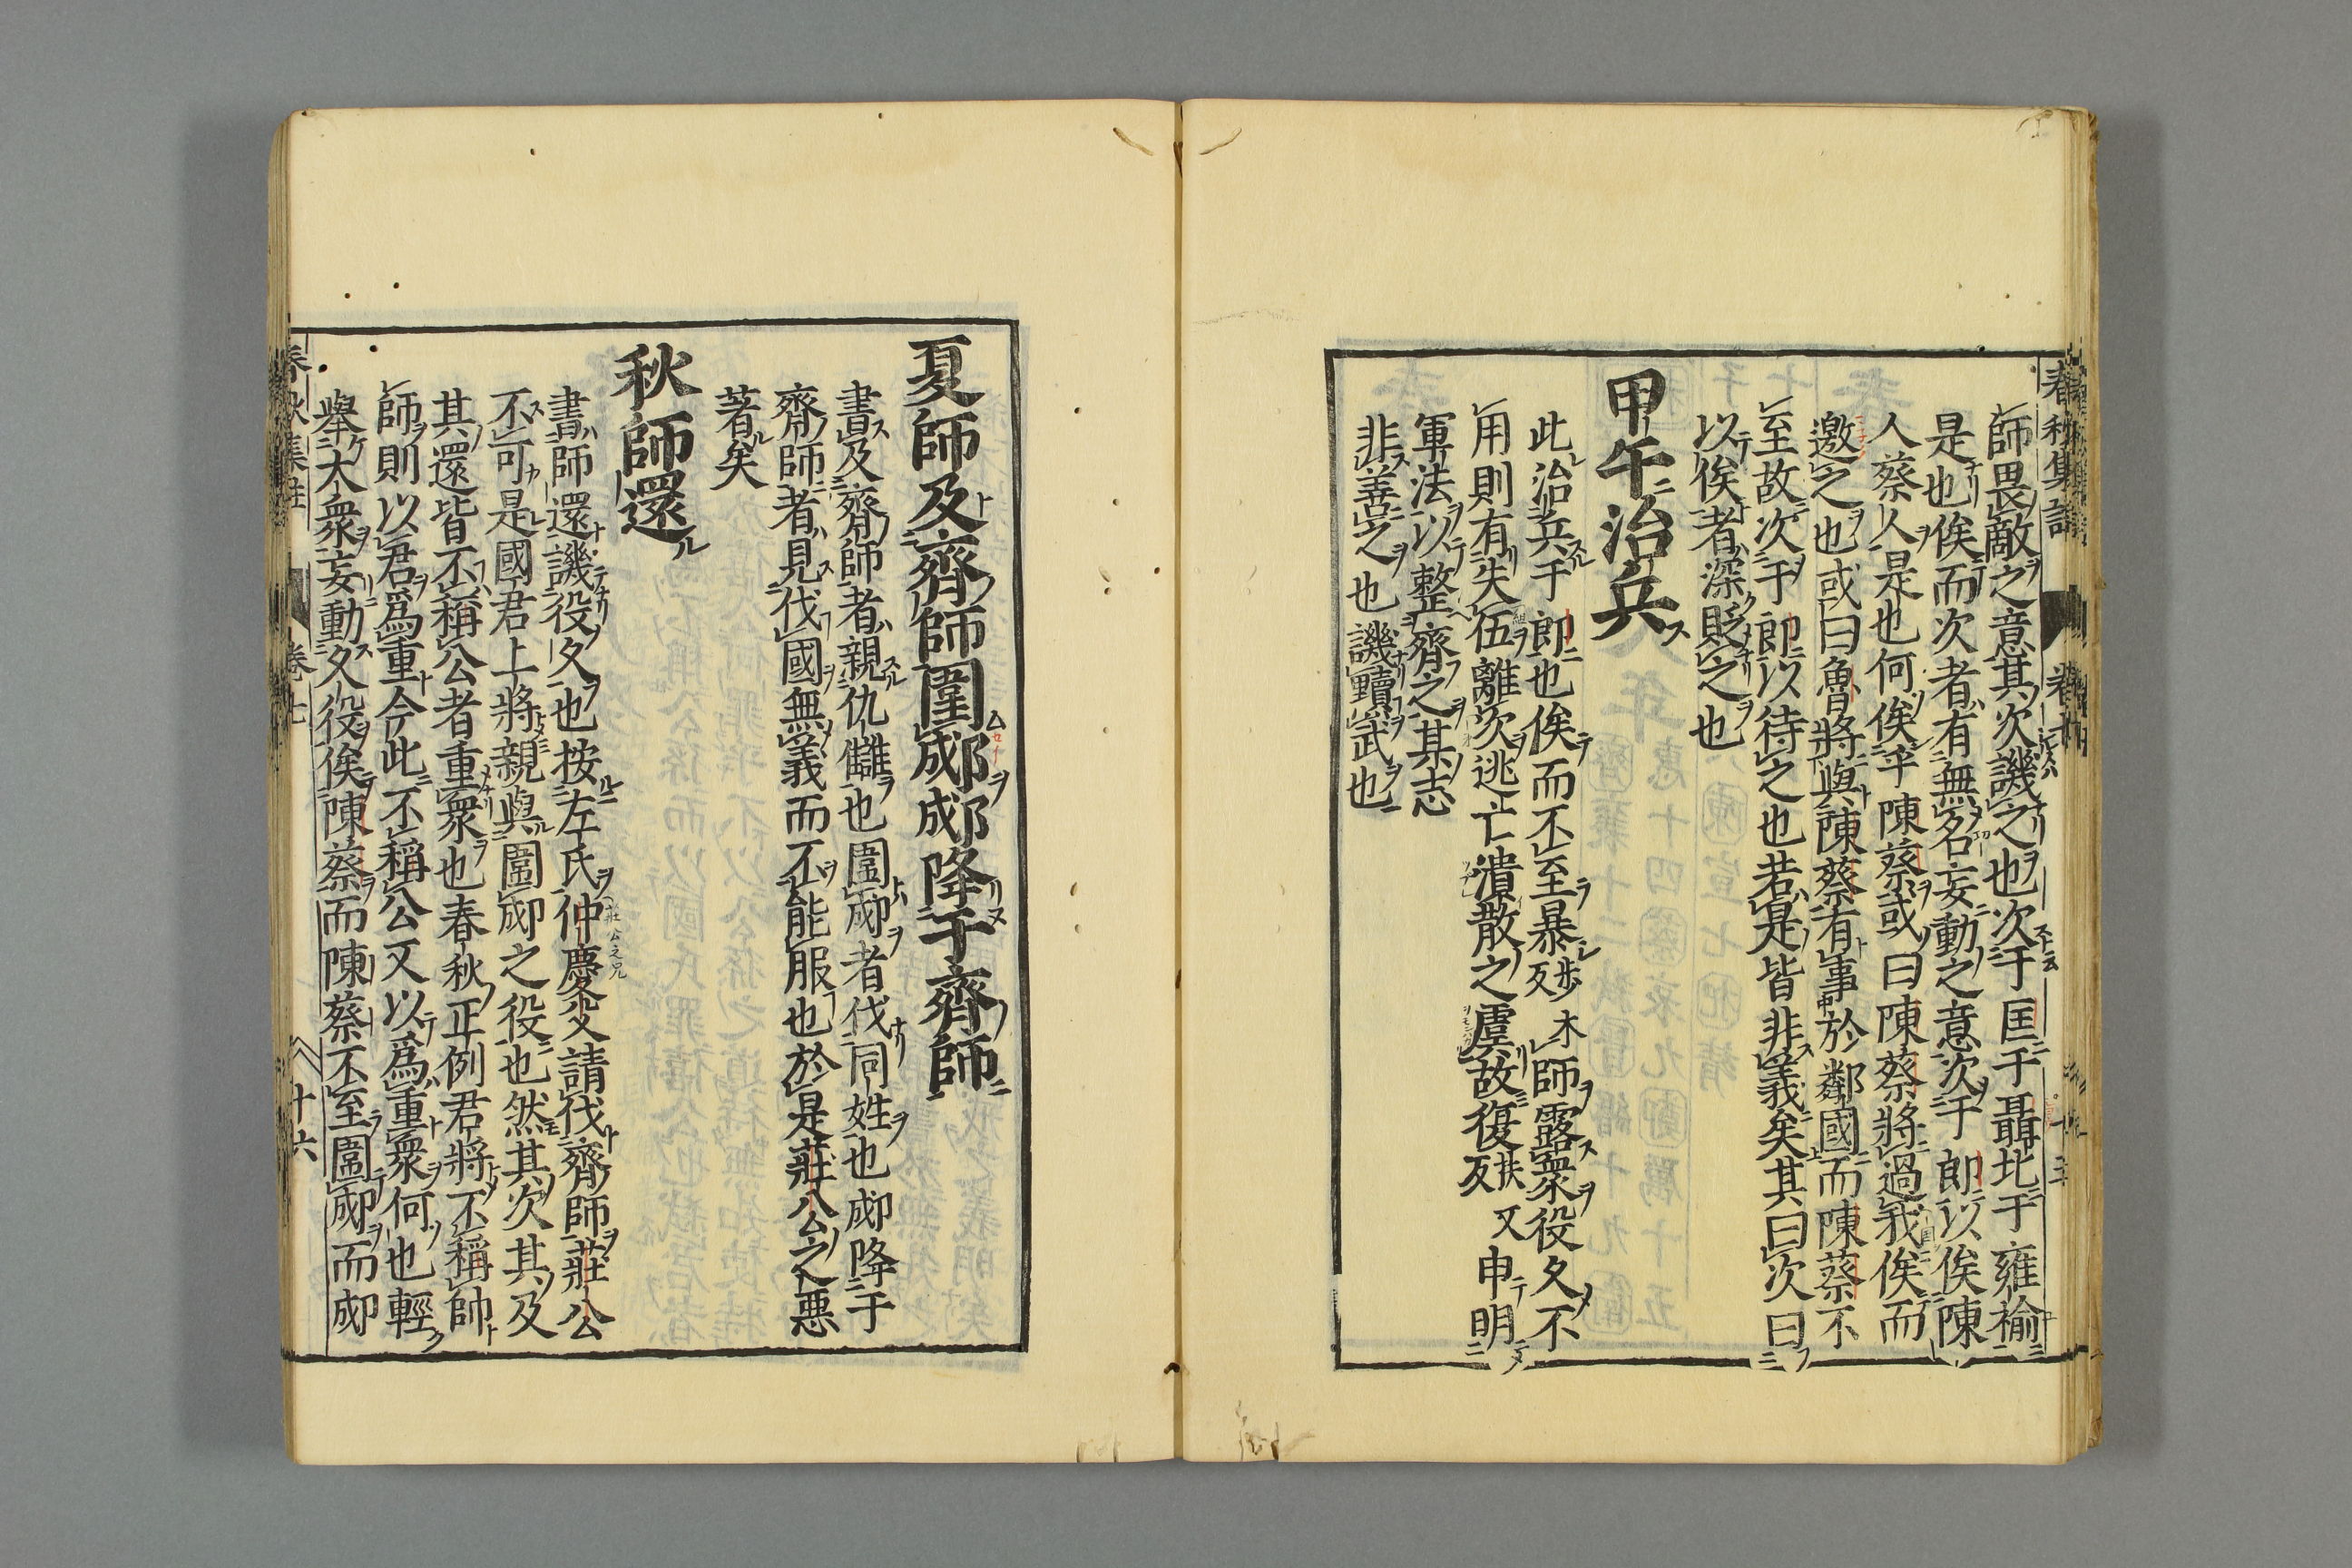 師畏敵之意其次譏之也次于匡于聶北于雍褕
是也俟而次者有無名妄動之意次于郎以俟陳
人蔡人是也何俟乎陳蔡或曰陳蔡將過我俟而
邀之也或曰魯將與陳蔡有事於鄰國而陳蔡不
至故次于郎以待之也若是皆非義矣其曰次曰
以俟者深貶之也
甲午治兵
此治兵于郎也俟而不至暴師露衆役久不
用則有失伍離次逃亡潰散之虞故復又申明
軍法以整齊之其志
非善之也譏黷武也
夏師及齊師圍郕郕降于齊師
書及齊師者親仇讎也圍郕者伐同姓也郕降于
齊師者見伐國無義而不能服也於是莊公之惡
著矣
秋師還
書師還譏役久也按左氏仲慶父請伐齊師莊公
不可是國君上將親與圍郕之役也然其次其及
其還皆不稱公者重衆也春秋正例君將不稱帥
師則以君爲重今此不稱公又以爲重衆何也輕
舉大衆妄動久役俟陳蔡而陳蔡不至圍郕而郕
春秋集註
卷七
十六